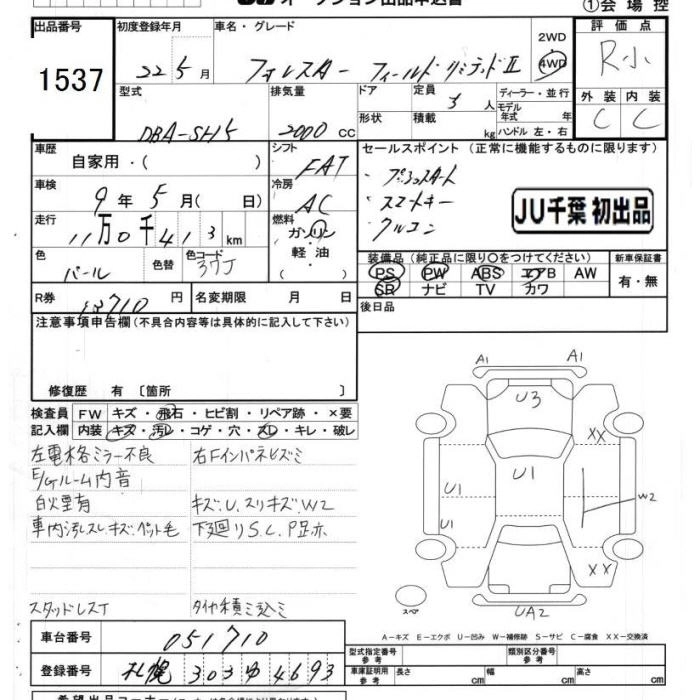 ①会場控
出品番号
1537
初度登録年月
22 5月
車名・グレード
フォレスター フィールドリミテッドⅡ
2WD
4WD
評価点
R小
型式
DBA-SH5
排気量
2000 cc
ドア
形状
定員
5人
積載
kg
ディーラー・並行
モデル年式 年
ハンドル 左・右
外装 内装
C C
車歴
自家用・( )
シフト
FAT
セールスポイント(正常に機能するものに限ります)
・プッシュスタート
・スマートキー
・クルコン
JU千葉 初出品
車検
9年5月( 日)
冷房
AC
走行
11万0千413km
燃料
ガソリン
軽油
( )
色
パール
色替
色コード
37J
装備品(純正品に限り〇をつけてください)
PS PW ABS エアB AW
SR ナビ TV カワ
新車保証書
有・無
R券
円
名変期限 月 日
後日品
注意事項申告欄(不具合内容等は具体的に記入して下さい)
修復歴 有〔箇所 〕
検査員記入欄
FW キズ・飛石・ヒビ割・リペア跡・×要
内装 キズ・汚レ・コゲ・穴・スレ・キレ・破レ
左電格ミラー不良
右Fインパネヒズミ
E/Gルーム内音
白煙有
キズ.U.スリキズW2
車内汚レスレキズ.ペット毛
下廻りS.C.P歪ホ
スタッドレスT
タイヤ積ミ込ミ
A1
A1
U3
XX
U1
U1
U1
W2
XX
UA2
スペア
A-キズ E-エクボ U-凹み W-補修跡 S-サビ C-腐食 XX-交換済
車台番号
051710
登録番号
札幌 303 ゆ 4693
型式指定番号
参考
類別区分番号
参考
車庫証明用
参考
長さ cm
幅 cm
高さ cm